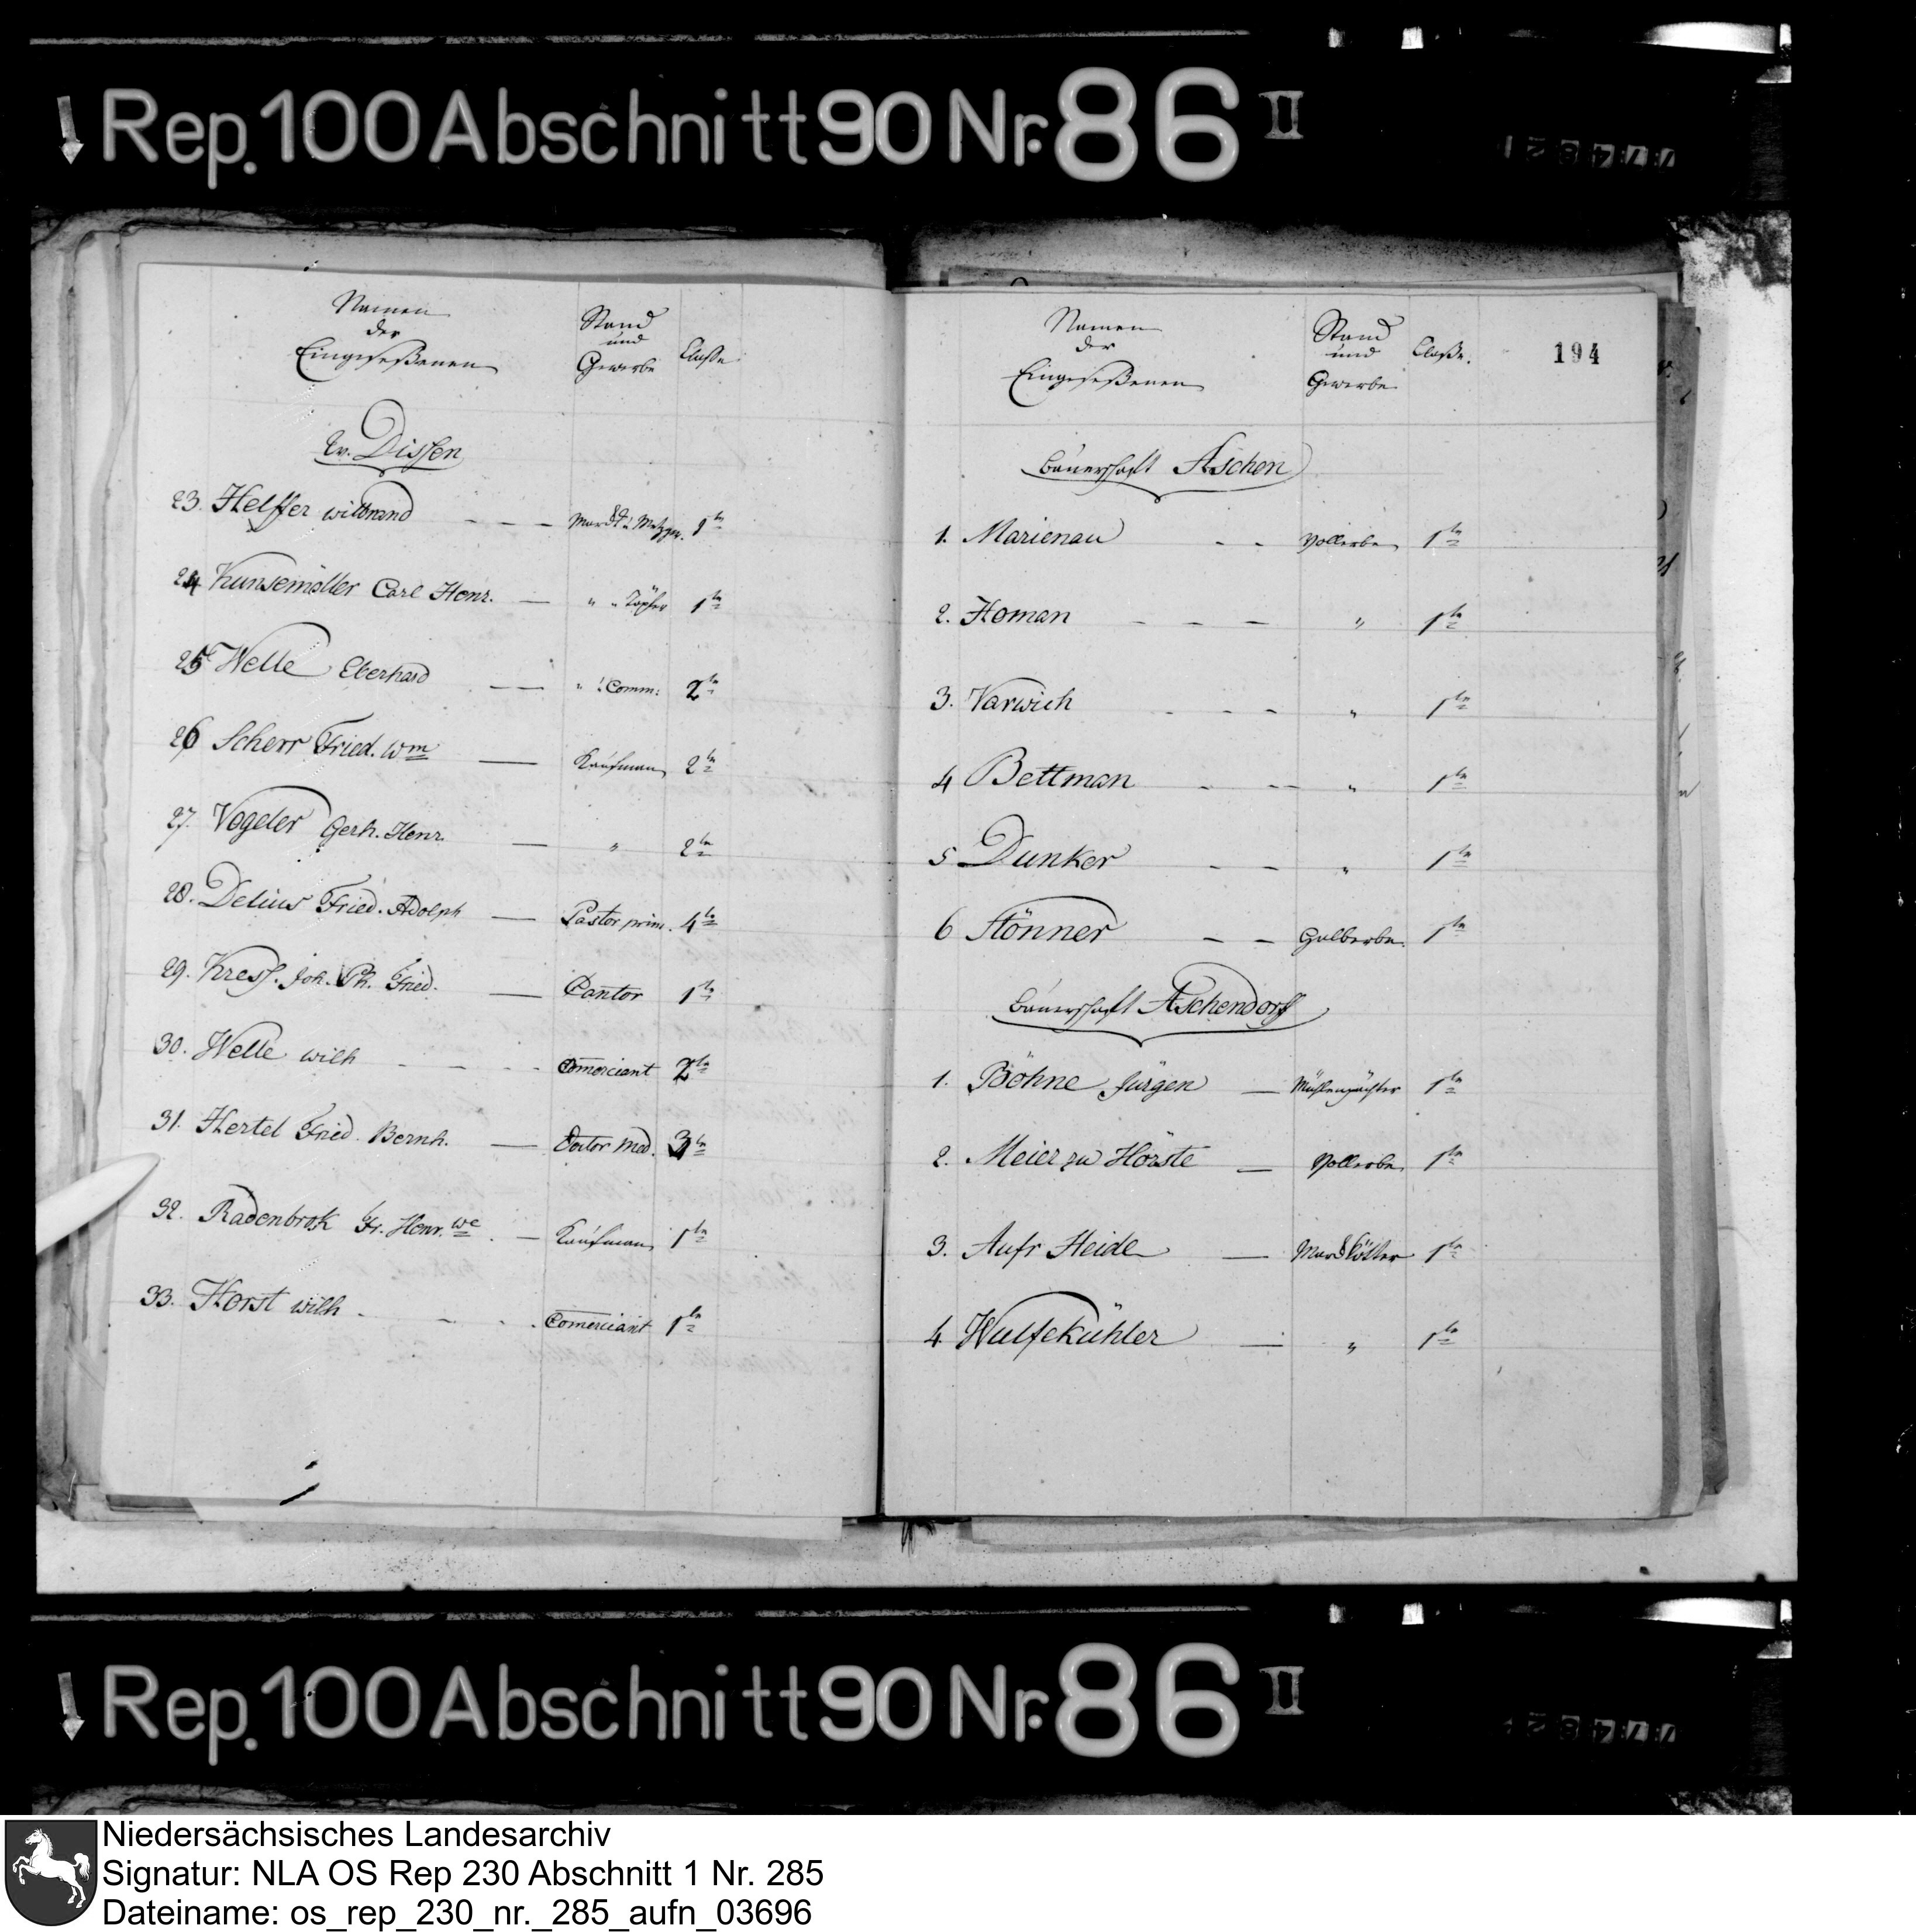 Rep. 100 Abschnitt 90 Nr. 86 II
Namen
der
Eingeseßenen
Stand
und
Gewerbe
Classe
Dissen
23. Helffer wilbrand - - - Markk. u. Metzger. 1te
24 Kunsemöller Carl Henr. — " " Töpfer 1te
25 Welle Eberhard — " Comm: 2te
26 Scherr Fried. Wm — Kaufman 2te
27. Vogeler Gerh. Henr. — " 2te
28. Delius Fried. Adolph — Pastor prim. 4te
29. Kress. Joh. Ph. Fried. — Cantor 1te
30. Welle wilh - - - - Comerciant 2te
31. Hertel Fried. Bernh. — Doctor Med. 3te
32. Radenbrok Fr. Henr. We — Kaufman 1te
33. Horst wilh - - - Comerciant 1te
194
Namen
der
Eingeseßenen
Stand
und
Gewerbe
Classe.
Bauerschaft Aschen
1. Marienau - - Vollerbe 1te
2. Homan - - - " 1te
3. Varwich - - - " 1te
4 Bettman - - - " 1te
5 Dunker - - " 1te
6 Stönner - - Halberbe. 1te
Bauerschaft Aschendorff
1. Böhne Jürgen — Mühlenpächter 1te
2. Meier zu Hörste — Vollerbe 1te
3. Aufr Heide — Markkötter 1te
4. Wulfekühler — " 1te
Rep. 100 Abschnitt 90 Nr. 86 II
Niedersächsisches Landesarchiv
Signatur: NLA OS Rep 230 Abschnitt 1 Nr. 285
Dateiname: os_rep_230_nr._285_aufn_03696